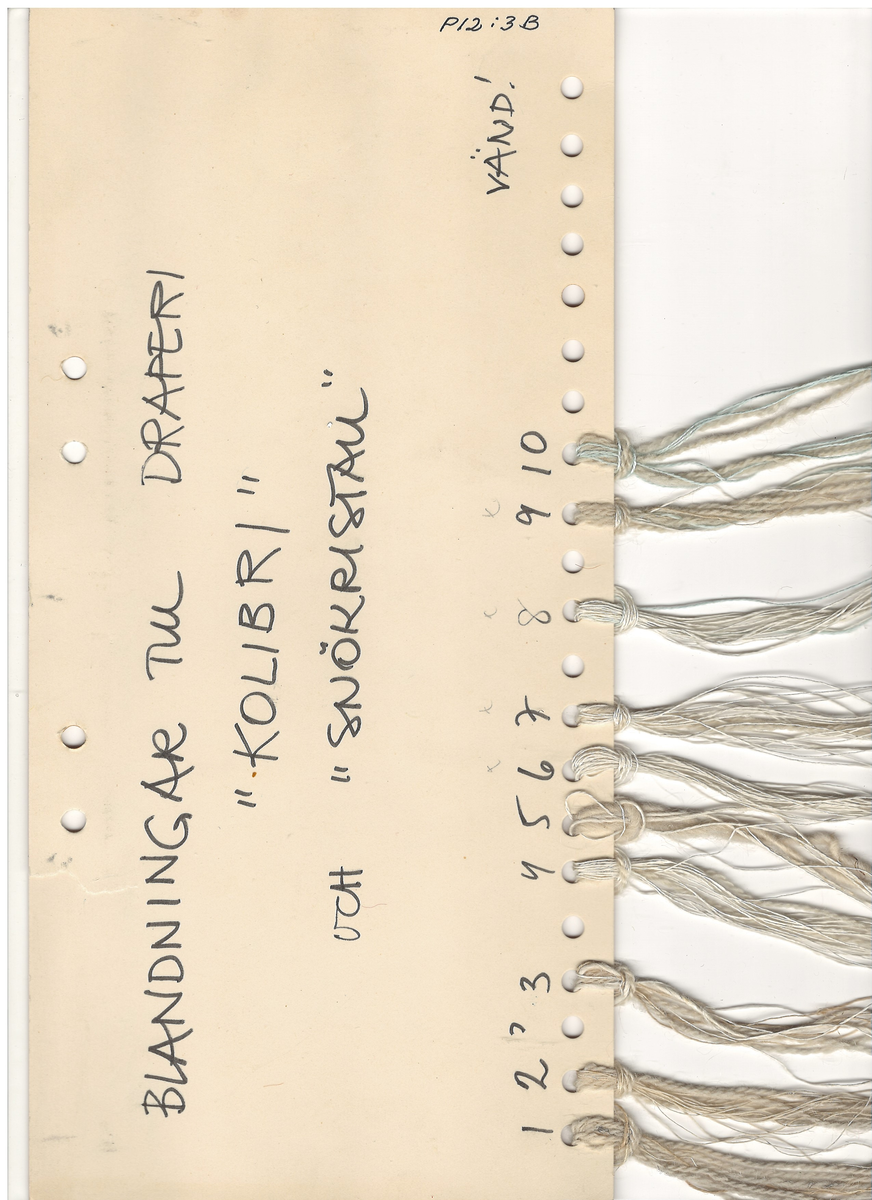 P12:3B
BLANDNINGAR TILL DRAPERI
"KOLIBRI"
OCH "SNÖKRISTALL"
VÄND!
1 2 3 4 5 6 7 8 9 10